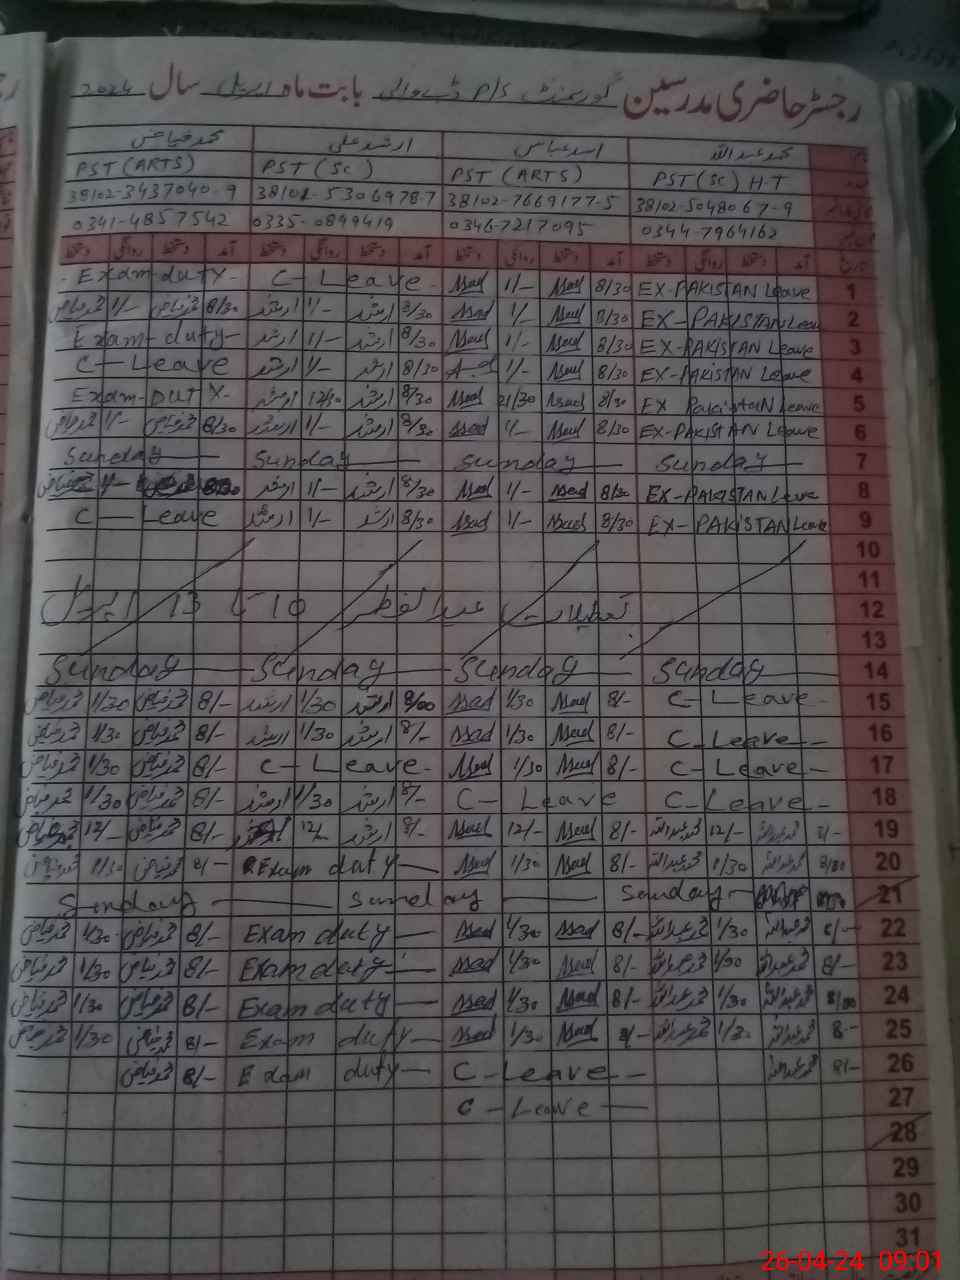 رجسٹر حاضری مدرسین گورنمنٹ P/S بابت ماہ اپریل سال 2024
محمد عبداللہ اسد عباس ارشد علی محمد فیاض
PST (SC) H.T PST (ARTS) PST (SC) PST (ARTS)
38102-5048067-9 38102-7669177-5 38102-5306978-7 38102-3437040-9
0344-7964162 0346-7217095 0335-0899419 0341-4857542
تاریخ آمد دستخط روانگی دستخط آمد دستخط روانگی دستخط آمد دستخط روانگی دستخط آمد دستخط روانگی دستخط
1 EX-PAKISTAN Leave 8/30 Asad 1/- Asad C-Leave- -Exam-duty-
2 EX-PAKISTAN Leave 8/30 Asad 1/- Asad 8/30 ارشد 1/- ارشد 8/30 محمد فیاض 1/- محمد فیاض
3 EX-PAKISTAN Leave 8/30 Asad 1/- Asad 8/30 ارشد 1/- ارشد Exam-duty-
4 EX-PAKISTAN Leave 8/30 Asad 1/- 8/30 ارشد 1/- ارشد C-Leave
5 EX PakistaN Leave 8/30 Asad Asad 8/30 ارشد 12/30 ارشد Exam-DUTY-
6 EX-PAKISTAN Leave 8/30 Asad 1/- Asad 8/30 ارشد 1/- ارشد 8/30 محمد فیاض 1/- محمد فیاض
7 Sunday- Sunday- Sunday- Sunday-
8 EX-PAKISTAN Leave Asad 1/- Asad 8/30 ارشد 1/- ارشد 8/30 1/- محمد فیاض
9 EX-PAKISTAN Leave 8/30 Asad 1/- Asad 8/30 ارشد 1/- ارشد C-Leave
10
11
12 تعطیلات عید الفطر 10 تا 13 اپریل
13
14 Sunday Sunday- Sunday- Sunday-
15 C-Leave- 8/- Asad 1/30 Asad 8/00 ارشد 1/30 ارشد 8/- محمد فیاض 1/30 محمد فیاض
16 C-Leave- 8/- Asad 1/30 Asad 8/- ارشد 1/30 ارشد 8/- محمد فیاض 1/30 محمد فیاض
17 C-Leave- 8/- Asad 1/30 Asad C-Leave- 8/- محمد فیاض 1/30 محمد فیاض
18 C-Leave- C-Leave 8/- ارشد 1/30 ارشد 8/- محمد فیاض 1/30 محمد فیاض
19 8/- محمد عبداللہ 12/- محمد عبداللہ 8/- Asad 12/- Asad 8/- ارشد 12/- 8/- محمد فیاض 12/- محمد فیاض
20 8/00 محمد عبداللہ 1/30 محمد عبداللہ 8/- Asad 1/30 Asad Exam duty- 8/- محمد فیاض 1/30 محمد فیاض
21 Sunday- Sunday Sunday-
22 8/- محمد عبداللہ 1/30 محمد عبداللہ 8/- Asad 1/30 Asad Exam duty- 8/- محمد فیاض 1/30 محمد فیاض
23 8/- محمد عبداللہ 1/30 محمد عبداللہ 8/- Asad 1/30 Asad Exam duty- 8/- محمد فیاض 1/30 محمد فیاض
24 8/00 محمد عبداللہ 1/30 محمد عبداللہ 8/- Asad 1/30 Asad Exam duty- 8/- محمد فیاض 1/30 محمد فیاض
25 8- محمد عبداللہ 1/30 محمد عبداللہ 8/- Asad 1/30 Asad Exam duty- 8/- محمد فیاض 1/30 محمد فیاض
26 8/- محمد عبداللہ C-Leave- Exam duty- 8/- محمد فیاض
27 C-Leave-
28
29
30
31
26-04-24 09:01